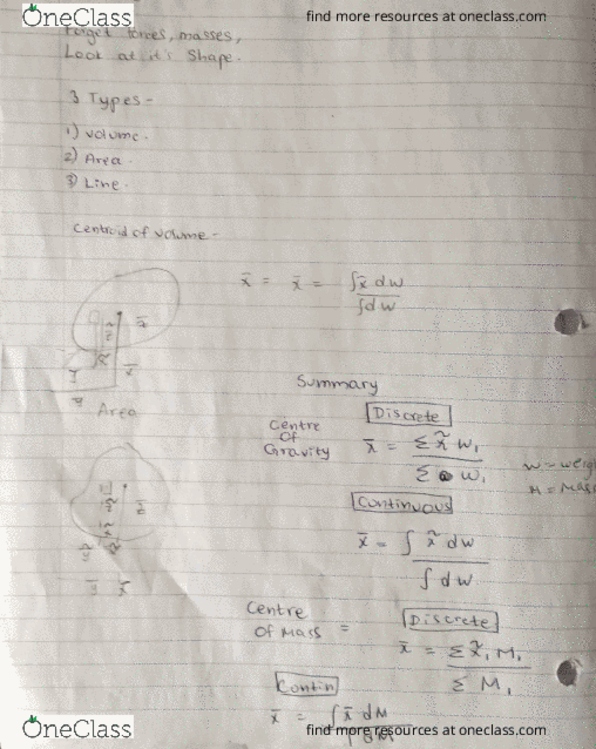 OneClass
find more resources at oneclass.com
Forget forces, masses,
Look at it's Shape.
3 Types -
1) volume.
2) Area.
3) Line.
Centroid of volume -
x̄ = x̄ = ∫x̃ dw / ∫dw
Area
Summary
Centre Of Gravity
Discrete
x̄ = Σ x̃ w₁ / Σ w₁
w = weig
M = Mas
Continuous
x̄ = ∫ x̃ dw / ∫ dw
Centre Of Mass =
Discrete
x̄ = Σ x̃₁ M₁ / Σ M₁
Contin
x̄ = ∫ x̄ dM
OneClass
find more resources at oneclass.com